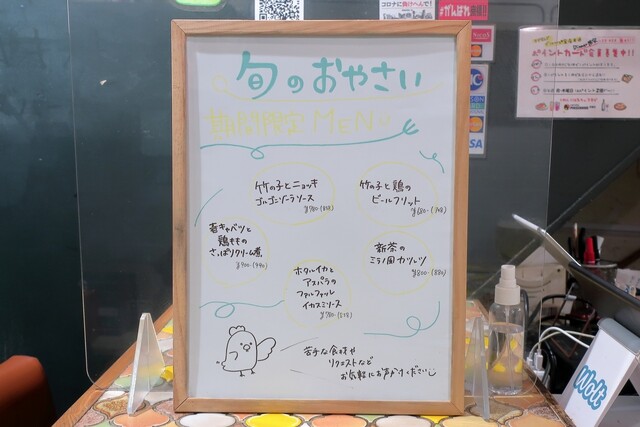 コロナに負けへんで!
#がんばれ
旬のおやさい
期間限定 MENU
竹の子とニョッキ
ゴルゴンゾーラソース
竹の子と鶏の
ビールフリット
春キャベツと
鶏ももの
さっぱりクリーム煮
¥900-(990)
新茶の
ミラノ風カツレツ
¥800-(880)
ホタルイカと
アスパラの
ファルファッレ
イカスミソース
苦手な食材や
リクエストなど
お気軽にお声がけください
ポイントカード会員募集中!!
VISA
Wolt